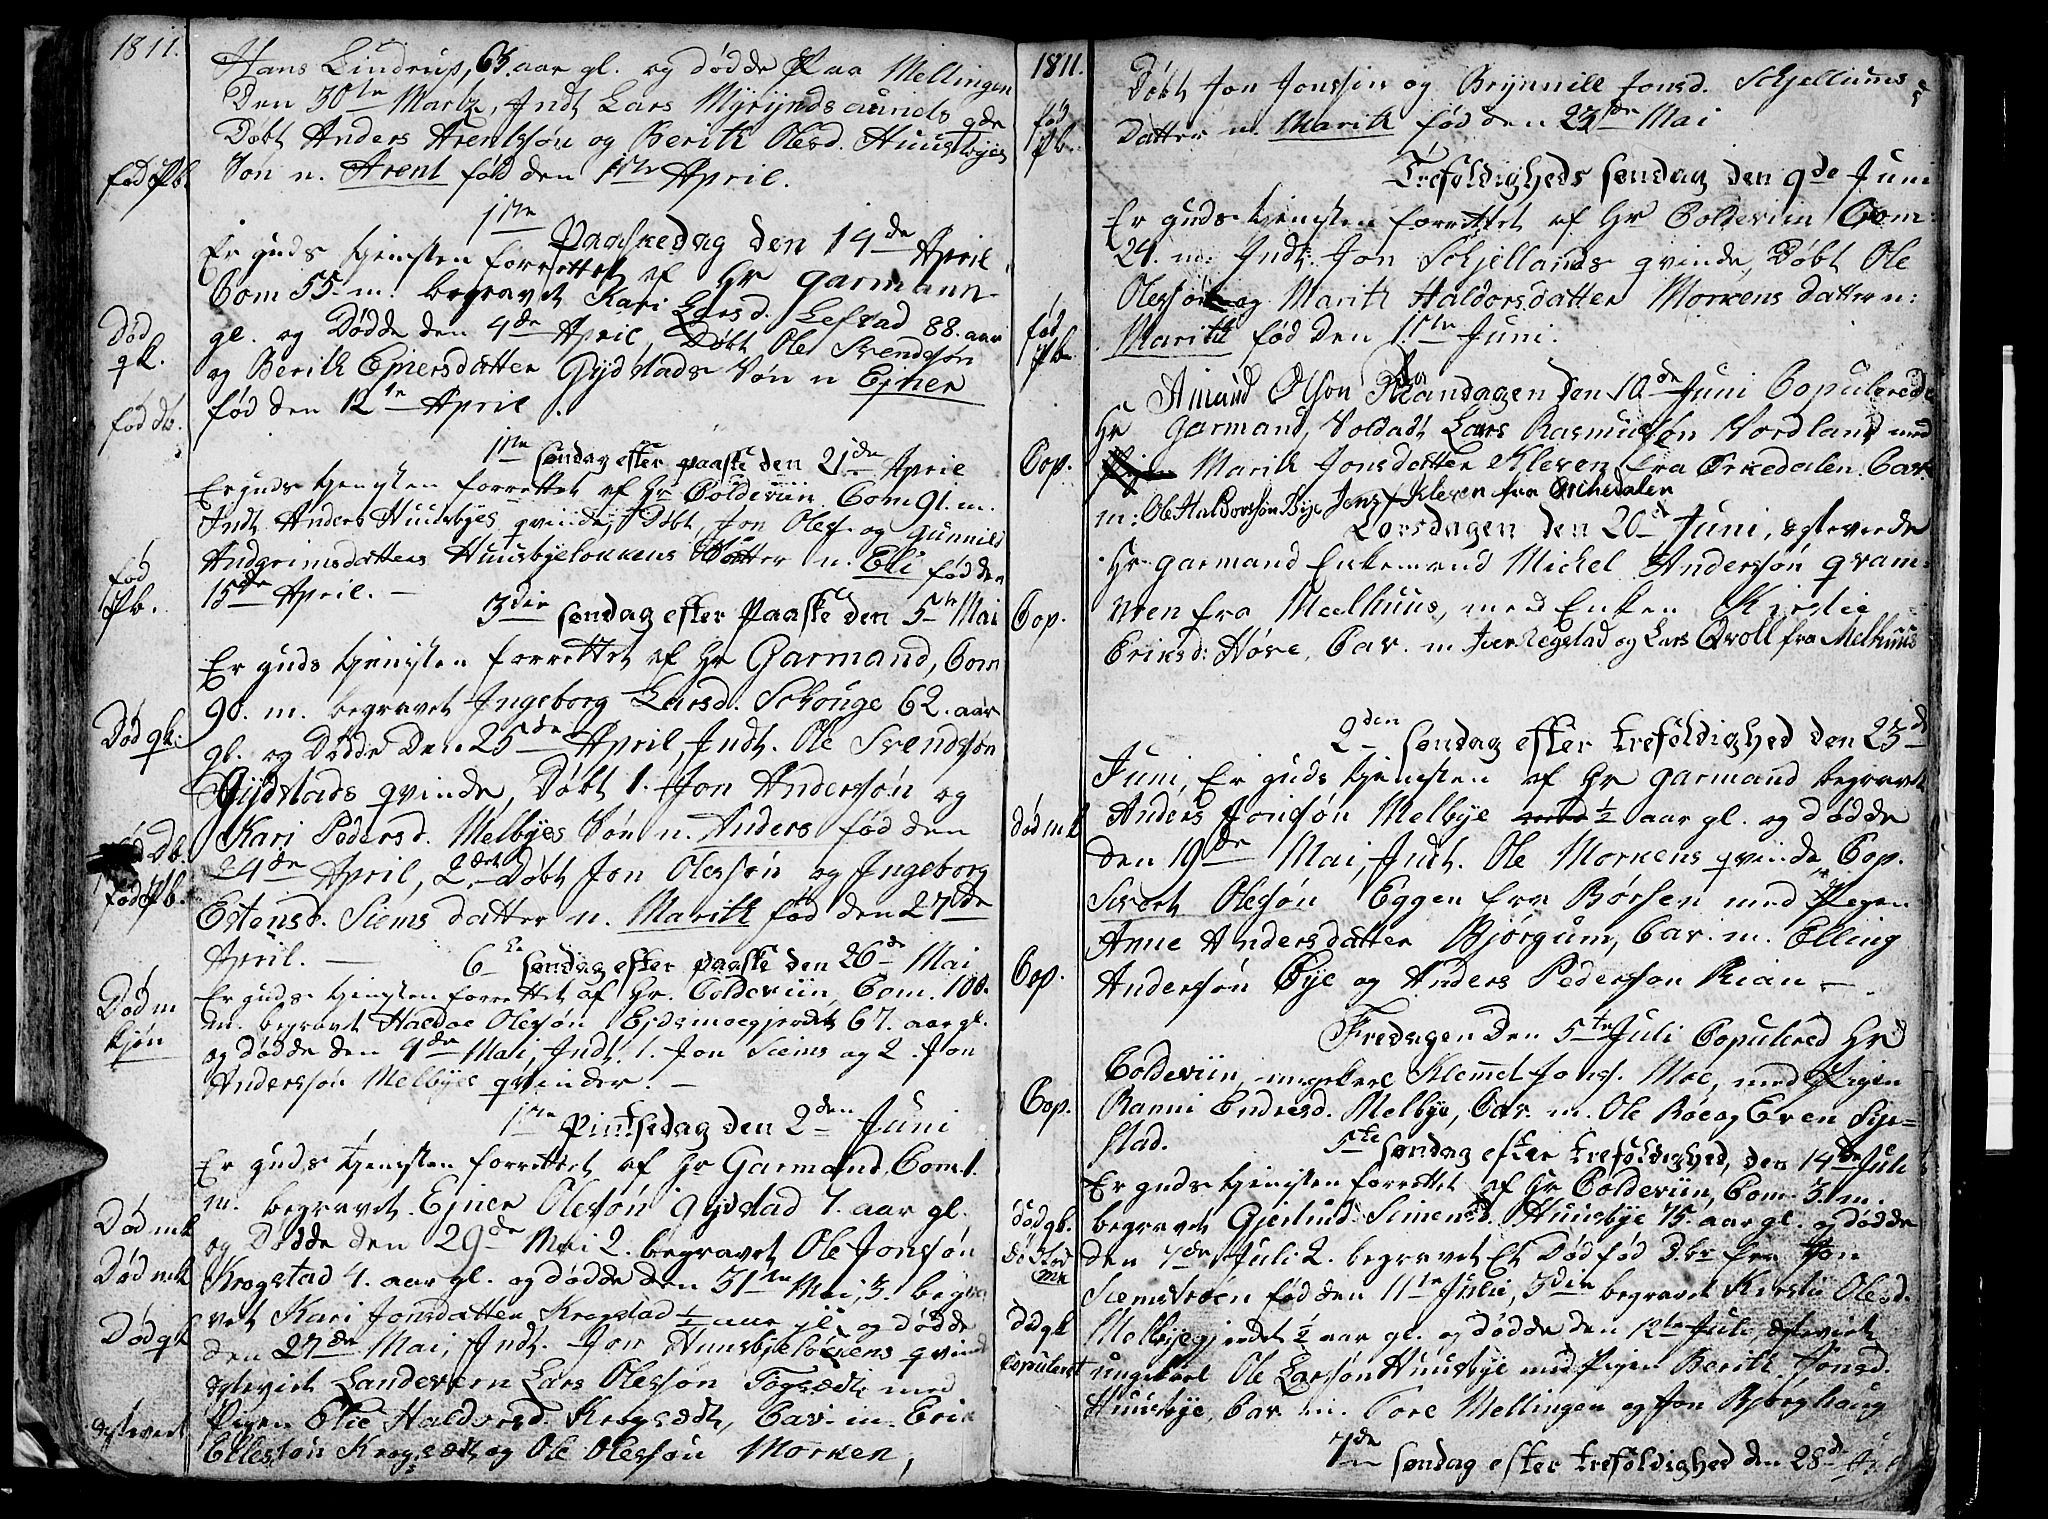 1811.
Hans Lindrup, 63 aar gl. og dødde Paa Mellingen
Den 30te Martz, Indt Lars Myrynds aunets qde
Døbt Anders Arentsøn og Berith Olesd. Huusbyes
fød Pb. Søn n. Arent fød den 1ste April.
1ste Paaskedag den 14de April
Er guds tjenesten forrettet af Hr Garmann
Com 55. m. begravet Kari Larsd. Lefstad 88. aar
Død qk. gl. og Dødde den 4de April, Døbt Ole Svendsøn
og Berith Ejnersdatter Gydstads Søn n Ejner
fød db. fød den 12te April.
1ste søndag efter paaske den 21de April
Er guds tjenesten forrettet af Hr Coldeviin Com 91. m.
Indt. Anders Huusbyes qvinde, Døbt, Jon Oles. og Gunnild
Andgrimsdatters Huusbyeløkkens Datter n. Eli fød den
fød Pb. 15de April. –
3die søndag efter Paaske den 5te Mai
Er guds tjenesten forrettet af Hr Garmand, Com
90. m. begravet Ingeborg Larsd. Schouge 62. aar
Død qk: gl. og Dødde Den 25de April, Indt. Ole Svendsøn
Gydstads qvinde, Døbt 1. Jon Andersøn og
Kari Pedersd. Melbyes Søn n. Anders fød den
fød Db. 24de April, 2det Døbt Jon Olessøn og Ingeborg
fød Pb. Estensd. Siems datter n. Marith fød den 27de
April. –
6te søndag efter paaske den 26de Mai
Er guds tjenesten forrettet af Hr. Coldeviin, Com. 100.
Død m kjøn m. begravet Haldoe Olessøn Ejdsmoegjerdet 67. aar gl.
og dødde den 9de Mai, Indt. 1. Jon Siems og 2. Jon
Anderssøn Melbyes qvinder. –
1ste Pintsedag den 2den Juni
Er guds tjenesten forrettet af Hr Garmand Com. 1.
Død mk m. begravet. Ejner Olessøn Gydstad 7. aar gl.
og Dødde den 29de Mai 2. begravet Ole Jonssøn
Død mk Krogstad 4. aar gl. og dødde den 31te Mai, 3. begra
vet Kari Jonsdatter Krogstad ½ aar gl, og dødde
Død qk den 27de Mai, Indt. Jon Huusbyeløkkens qvinde
egtevict Landevern Lars Olessøn Fogsædt, med
egtevict Pigen Elie Haldorsd. Krogsædt, Cav. m. Erik
Ellessøn Krogsædt og Ole Olessøn Morken,
1811.
Døbt Jon Jonssøn og Brynnild Jonsd. Schjellums
fød Pb. datter n. Marith fød den 23de Mai
Trefoldigheds søndag den 9de Juni
Er guds tjenesten forrettet af Hr Coldeviin Com:
24. m. Indt. Jon Schjellands qvinde, Døbt Ole
Olessøn og Marith Haldorsdatter Morkens datter n:
fød Pb Marith fød den 1ste Juni.
Amund Olson Mandagen den 10de Juni Copulerede
Hr Garmand, Soldadt Lars Rasmussøn Nordland med
Cop. Marith Jonsdatter Kleven fra Orkedalen. Cav
m: Ole Haldorssøn Bye Jens Kleven fra Orchedalen
Torsdagen den 20de Juni, egteviede
Hr Garmand Enkemand Michel Andersøn qvam-
Cop. men fra Melhuus, med Enken Kirstie
Eriksd: Høve, Cav. m. Iver Regstad og Lars Qvoll fra Melhuus
2den søndag efter trefoldighed den 23de
Juni, Er guds tjenesten af Hr Garmand begravet
Død mk Anders Jonssøn Melbye ½ aar gl. og dødde
den 19de Mai, Indt. Ole Morkens qvinde, Cop.
Sivert Olessøn Eggen fra Børsen med Pigen
Anne Andersdatter Bjørgum, Cav. m. Elling
Cop. Anderssøn Øye og Anders Pederssøn Rian –
Fredagen Den 5te Juli Copulered Hr
Coldeviin, ungekarl Klemmet Jons. Moe, med Pigen
Cop. Ranni Endresd. Melbye, Cav. m. Ole Røe og Even Sye-
stad.
5te søndag efter trefoldighed, den 14de Juli
Er guds tjenesten forrettet af Hr Coldeviin, Com. 31 m.
død qk. begravet Gjertrud Simensd. Huusbye 75. aar gl. og dødde
den 7de Juli 2. begravet Et Dødfød D.br fra Jon
Siemsvøen fød den 11te Julie, 3die begravet Kirstie Olesd.
Død qk Melbyegjerdet ½ aar gl. og dødde den 12te Juli, egtevict
Copuleret ungekarl Ole Larssøn Huusbye med Pigen Berith Jonsd.
Huusbye, Cav. m. Tore Mellingen og Jon Bjørghaug
7de søndag efter trefoldighed den 28de Juli